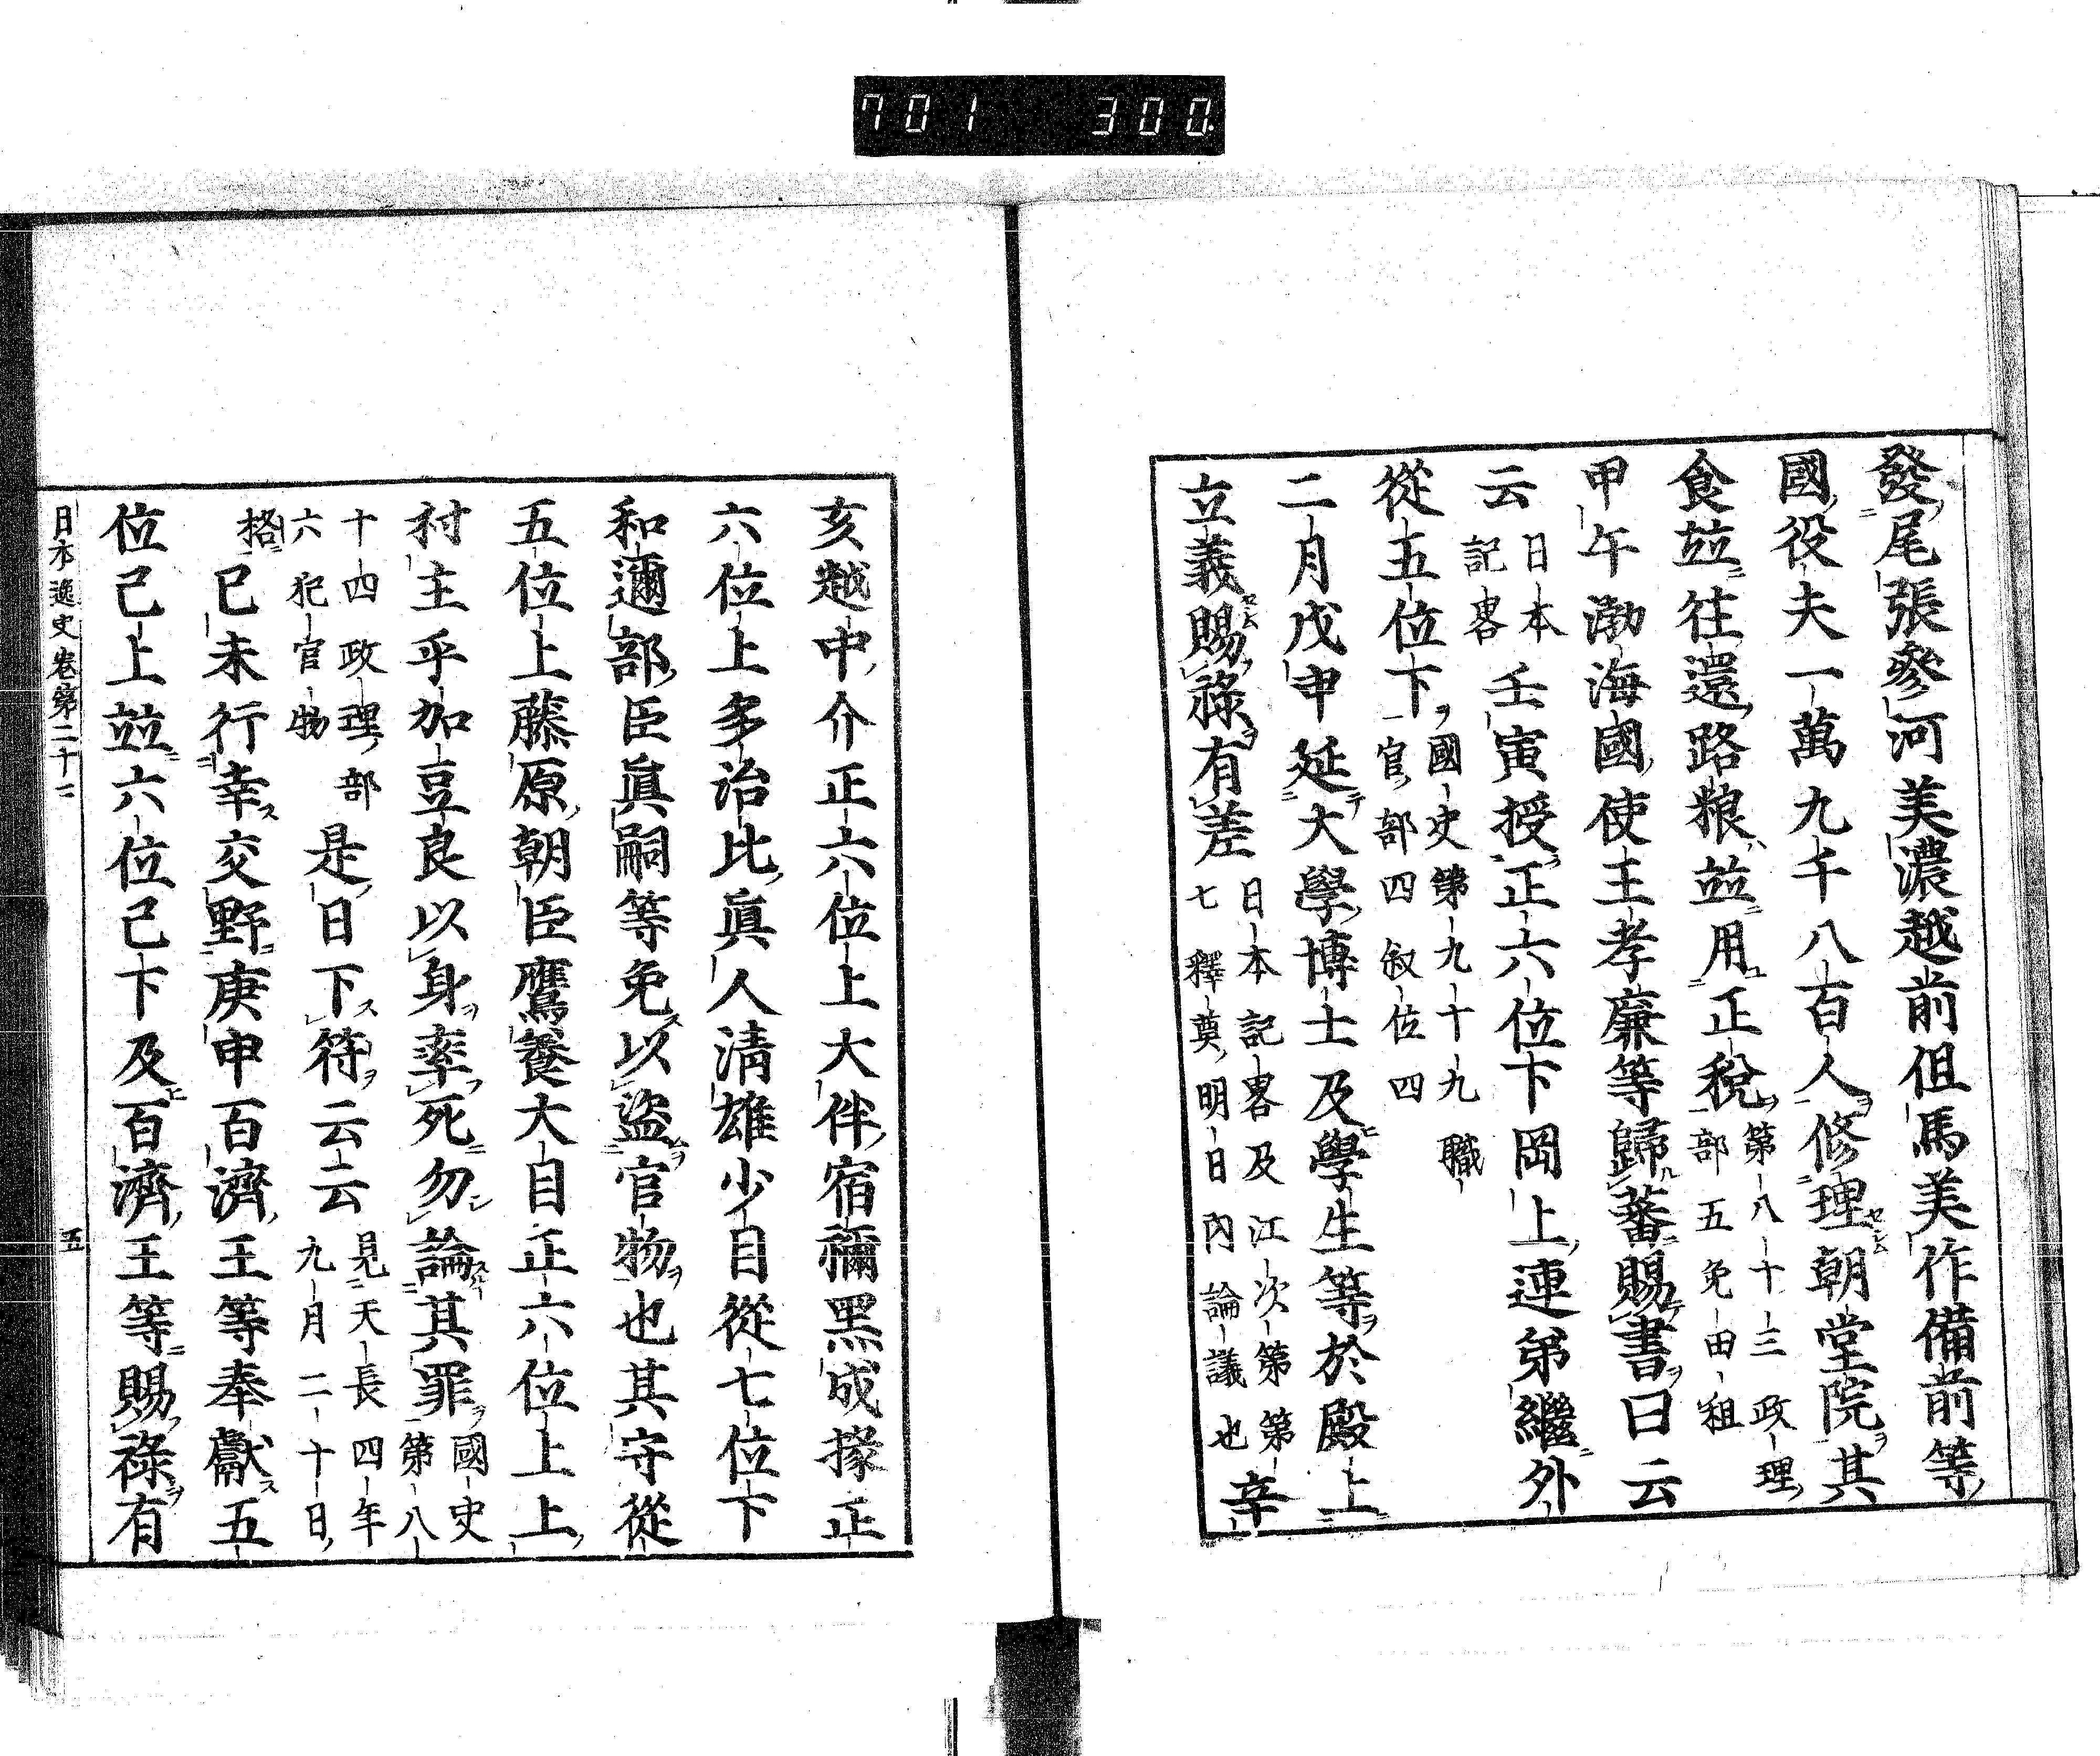 701 300
發尾張參河美濃越前但馬美作備前等
國役夫一萬九千八百人修理朝堂院其
食並往還路粮並用正税第八十三政理部五免田租
甲午渤海國使王孝廉等歸蕃賜書曰云
云日本記畧壬寅授正六位下岡上連第繼外
從五位下國史第九十九職官部四叙位四
二月戊申延大學博士及學生等於殿上
立義賜祿有差日本記畧及江次第第七釋奠明日內論議也辛
亥越中介正六位上大伴宿禰黑成掾正
六位上多治比眞人清雄少目從七位下
和邇部臣眞嗣等免以盜官物也其守從
五位上藤原朝臣鷹養大目正六位上上
村主乎加豆良以身率死勿論其罪國史第八
十四政理部六犯官物是日下符云云見天長四年九月二十日
格己未行幸交野庚申百濟王等奉獻五
位己上並六位己下及百濟王等賜祿有
日本逸史卷第二十二 五